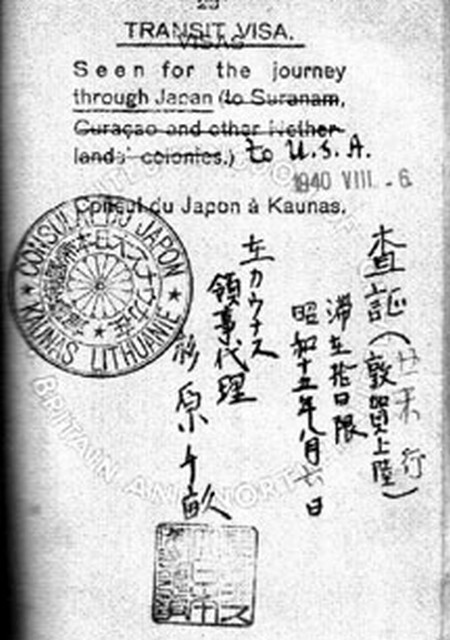 TRANSIT VISA.
VISAS
Seen for the journey
through Japan (to Suranam,
Curaçao and other Nether-
lands' colonies.) to U.S.A.
1940 VIII - 6
Consul du Japon à Kaunas.
CONSULAT DU JAPON
KAUNAS LITHUANIE
査証(敦賀上陸)
米行
滞在拾日限
昭和十五年八月六日
在カウナス
領事代理
杉原千畝
BRITAIN AND NORTH